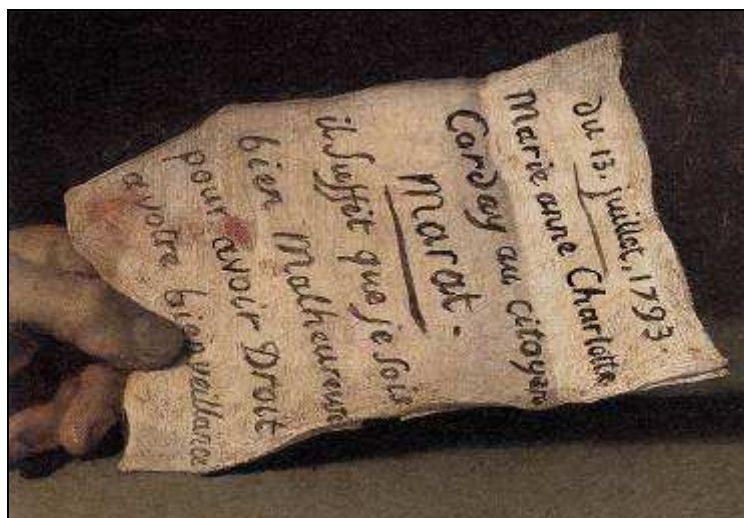 du 13. juillet, 1793
Marie anne Charlotte
Corday au citoyen
Marat.
il suffit que je sois
bien Malheureuse
pour avoir Droit
a votre bienveillance